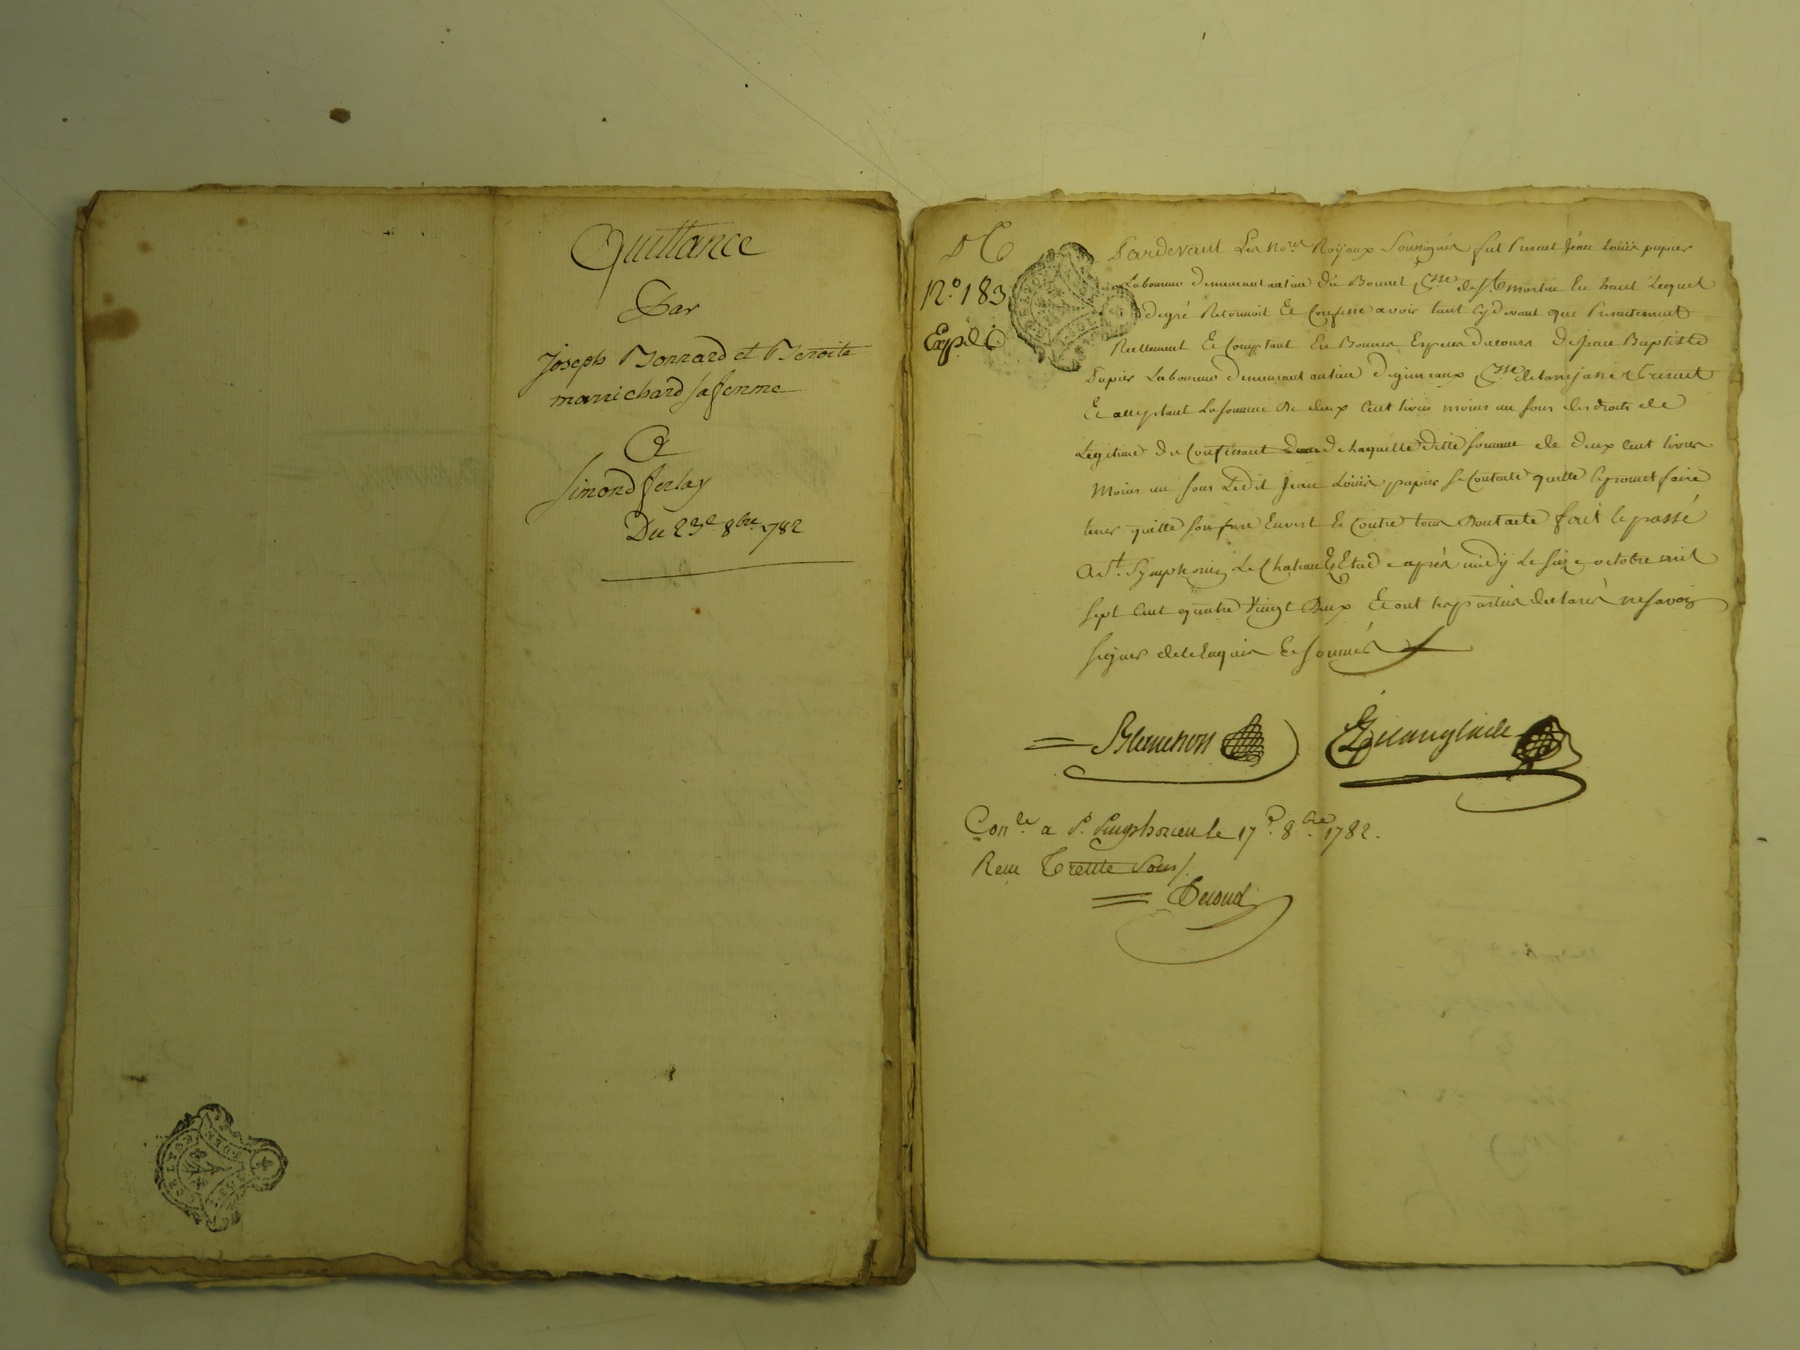 Quittance
Par
Joseph Bonnard et Benoite
marrichard sa femme
A
Simond ferlay
Du 23e 8bre 1782
N.o 183
Expd.
Pardevant Les No.res Royaux Soussignés fut Present Jean Louis papier
Laboureur demeurant au lieu du Bonnet P.sse de S.t martin la haut Lequel
degré Reconnoit Et Confesse avoir tant Cydevant que Presentement
Reellement Et Comptant En Bonnes Especes du cours de Jean Baptiste
Papier Laboureur demeurant au lieu de P.sse de Present
Et acceptant La somme De deux Cent livres moins un sous des droits de
Legitime du Confessant de laquelle ditte somme de deux cent livres
Moins un sous Ledit Jean Louis papier Se Contente quitte Et promet faire
tenir quitte son frere Envers Et Contre tous Dont acte fait Et passé
A S.t Symphorien Le Chateau Etude après midy Le seize octobre mil
Sept Cent quatre Vingt Deux Et ont les parties declarés ne savoir
signer de ce Enquis Et Sommés
Con.lé a S.t Simphorien le 17.e 8.bre 1782.
Reçu Trente Sous